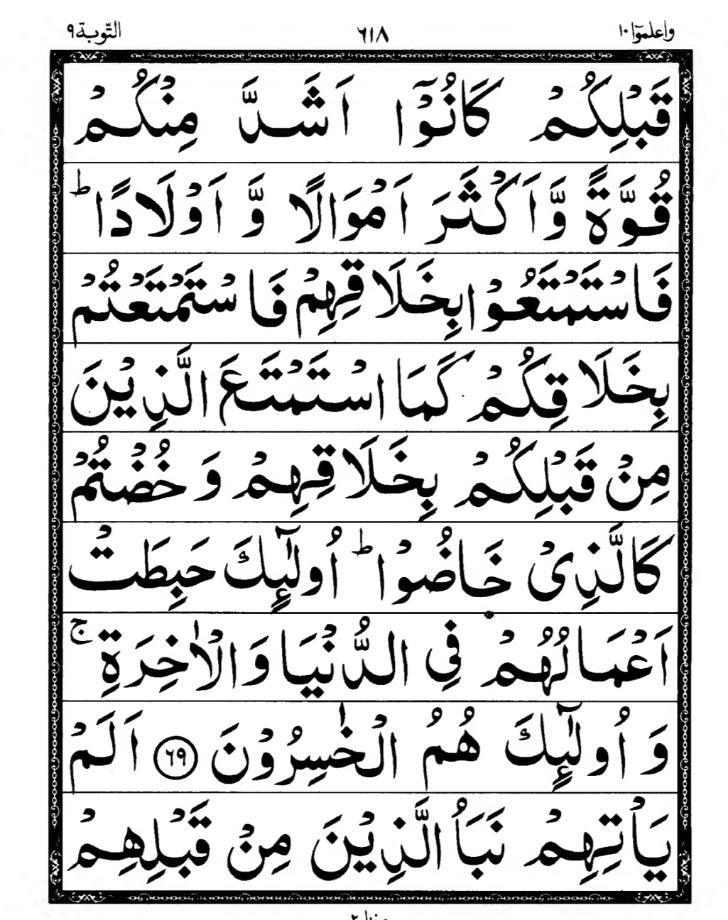 واعلموۤا ١٠ ٦١٨ التّوبة ٩
قَبْلِكُمْ كَانُوْۤا اَشَدَّ مِنْكُمْ
قُوَّةً وَّاَكْثَرَ اَمْوَالًا وَّ اَوْلَادًا ؕ
فَاسْتَمْتَعُوْا بِخَلَاقِهِمْ فَاسْتَمْتَعْتُمْ
بِخَلَاقِكُمْ كَمَا اسْتَمْتَعَ الَّذِيْنَ
مِنْ قَبْلِكُمْ بِخَلَاقِهِمْ وَ خُضْتُمْ
كَالَّذِىْ خَاضُوْا ؕ اُولٰٓئِكَ حَبِطَتْ
اَعْمَالُهُمْ فِى الدُّنْيَا وَالْاٰخِرَةِ ۚ
وَ اُولٰٓئِكَ هُمُ الْخٰسِرُوْنَ ٦٩ اَلَمْ
يَاْتِهِمْ نَبَاُ الَّذِيْنَ مِنْ قَبْلِهِمْ